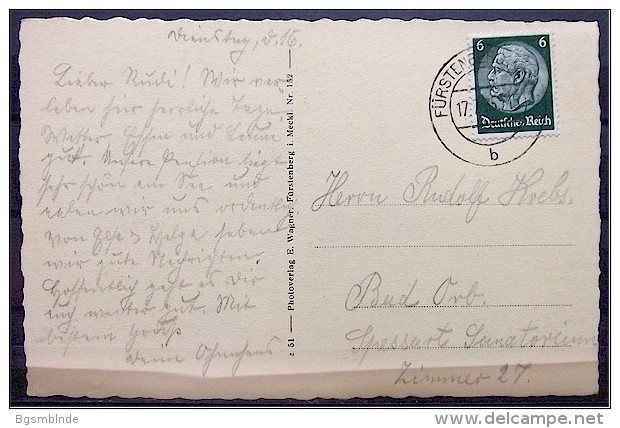 Dienstag, d. 16.
Lieber Rudi! Wir ver-
leben hier herrliche Tage.
Wetter und
gut. Unsere Pension liegt
sehr schön am See und
wir uns ordentlich
Von & Helga haben
wir gute Nachrichten.
Hoffentlich geht es dir
auch weiter gut. Mit
bestem Gruß
Dein
z 51 — Photoverlag E. Wagner, Fürstenberg i. Meckl. Nr. 152 —
6 6
Deutsches Reich
FÜRSTENB
17.
b
Herrn Rudolf Krebs.
Bad Orb.
Spessart Sanatorium
Zimmer 27.
Bgsmblnde
www.delcampe.net